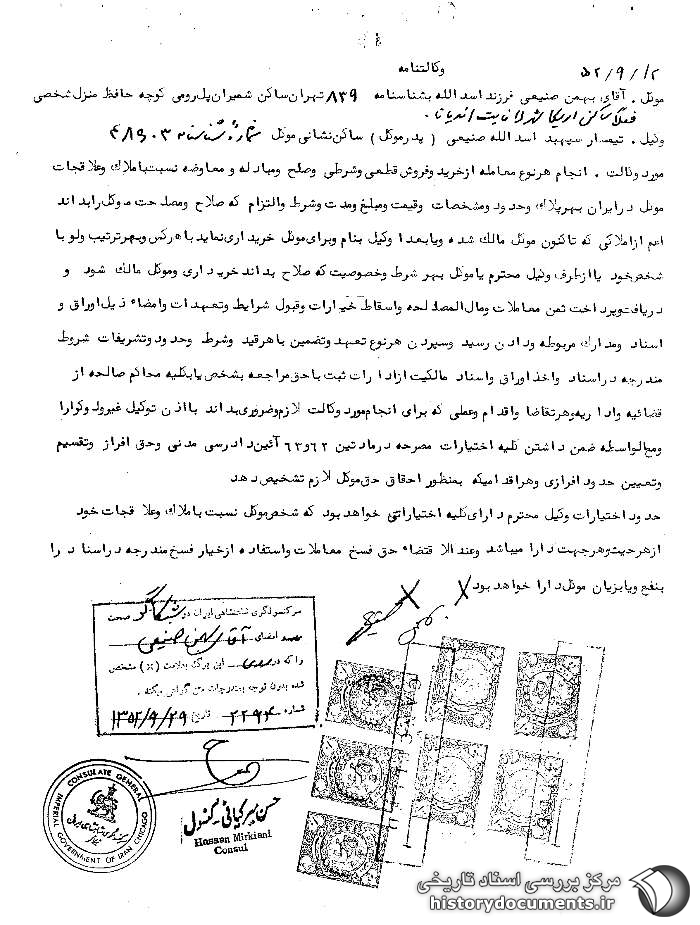 وکالتنامه
۵۲/۹/۱۲
موکل . آقای بهمن صنیعی فرزند اسد الله بشناسنامه ۸۳۹ تهران ساکن شمیران پل رومی کوچه حافظ منزل شخصی
فعلا ساکن امریکا شهر لافایت اندیانا .
وکیل . تیمسار سپهبد اسد الله صنیعی ( پدر موکل ) ساکن نشانی موکل شماره شناسنامه ۴۸۹۰۳
مورد وکالت . انجام هر نوع معامله از خرید و فروش قطعی و شرطی وصلح و مبادله و معاوضه نسبت باملاک وعلاقجات
موکل در ایران بهر پلاک وحدود و مشخصات وقیمت ومبلغ ومدت وشرط والتزام که صلاح ومصلحت موکل را بداند
اعم از املاکی که تاکنون موکل مالک شده ویا بعدا وکیل بنام وبرای موکل خریداری نماید با هرکس وبهر ترتیب ولو با
شخص خود یا از طرف وکیل محترم یا موکل بهر شرط وخصوصیت که صلاح بداند خریداری وموکل مالک شود و
دریافت و پرداخت ثمن معاملات ومال المصالحه واسقاط خیارات وقبول شرایط وتعهدات وامضاء ذیل اوراق و
اسناد ومدارک مربوطه ودادن رسید وسپردن هر نوع تعهد وتضمین با هر قید وشرط وحدود وتشریفات شروط
مندرجه در اسناد واخذ اوراق واسناد مالکیت از ادارات ثبت با حق مراجعه بشخص یا بکلیه محاکم صالحه از
قضائیه واداریه وهر تقاضا واقدام وعملی که برای انجام مورد وکالت لازم وضروری بداند با اذن توکیل غیر ولو کرارا
ومع الواسطه ضمن داشتن کلیه اختیارات مصرحه در مادتین ۶۲ و ۶۳ آئین دادرسی مدنی وحق افراز وتقسیم
وتعیین حدود افرازی وهر اقدامیکه بمنظور احقاق حق موکل لازم تشخیص دهد
حدود اختیارات وکیل محترم دارای کلیه اختیاراتی خواهد بود که شخص موکل نسبت باملاک وعلاقجات خود
از هر حیث وهر جهت دارا میباشد وعند الاقتضاء حق فسخ معاملات واستفاده از خیار فسخ مندرجه در اسناد را
بنفع ویا بزیان موکل دارا خواهد بود .
سرکنسولگری شاهنشاهی ایران در شیکاگو صحت
امضای آقای بهمن صنیعی
را که در این برگ بعلامت (×) مشخص
شده بدون توجه بمندرجات متن گواهی میکند .
شماره ۲۲۹۴ تاریخ ۱۳۵۲/۹/۲۹
CONSULATE GENERAL
IMPERIAL GOVERNMENT OF IRAN CHICAGO
حسن میرکیانی - کنسول
Hassan Mirkiani
Consul
مرکز بررسی اسناد تاریخی
historydocuments.ir